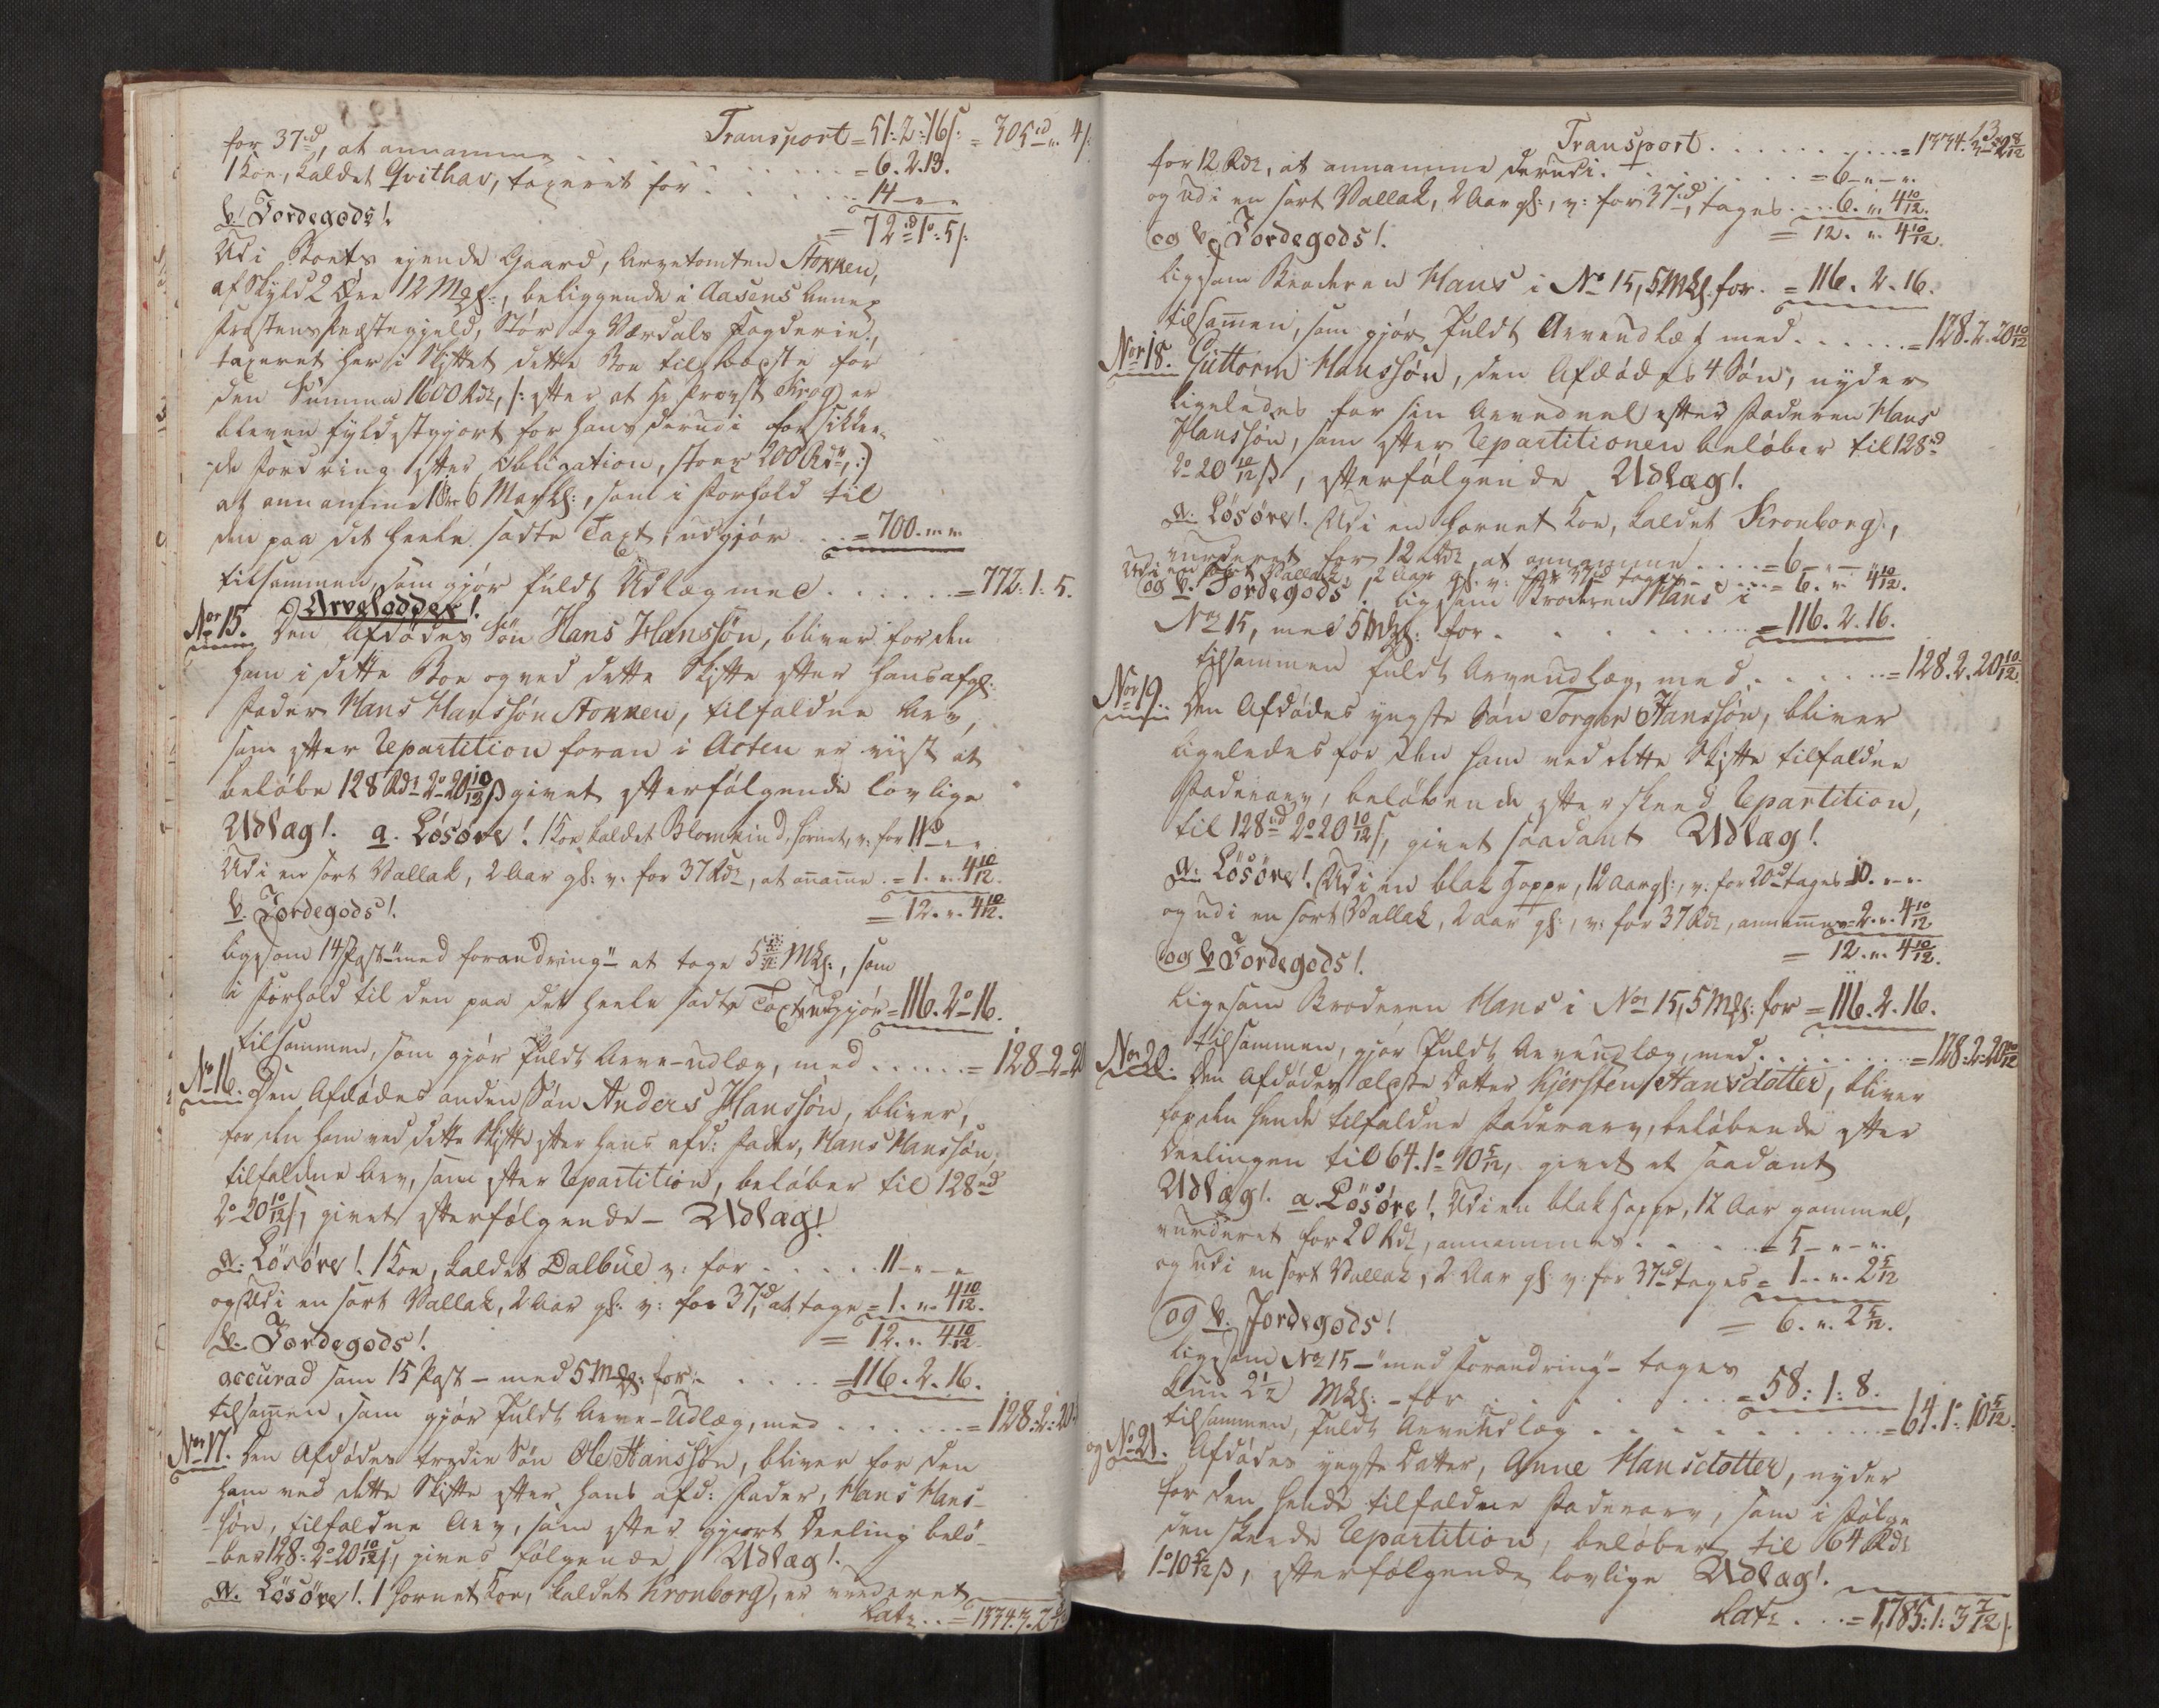 Transport = 51: 2: 16 ß: = 305 rd ". 4 ß:
for 37 rd, at annamme . . . . . . = 6. 2. 13.
1 Koe, kaldet Qvithav, taxeret for . . . 14 - " -
= 72 rd 1o: 5 ß:
b. Jordegods!
Udi Boets eyende Gaard, Arvetomten Stokken,
af Skyld 2 Øre 12 Mkl:, beliggende i Aasens Annex
Frostens Præstegjeld, Stør og Værdals Fogderie,
taxeret her i Skiftet dette Boe til høyste for
den Summa 1600 Rdr, /: efter at Hr Provst Krog er
bleven fyldestgjort for hans derudi forsikkre-
de Fordring efter Obligation, stoer 200 Rdr, :/
at annamme 1 Øre 6 Markl:, som i Forhold til
den paa det heele satte Taxt, udgjør . . = 700. " "
tilsammen, som gjør fuldt Udlæg med . . . . . = 772: 1: 5.
Arvelodder!
Nor 15. Den Afdødes Søn Hans Hanssøn, bliver for den
ham i dette Boe og ved dette Skifte efter hans afg:
Fader Hans Hanssøn Stokken, tilfaldne Arv,
som efter Repartition foran i Acten er viist at
beløbe 128 Rdr 2o 20 10/12 ß givet efterfølgende lovlige
Udlæg! a. Løsøre! 1 Koe kaldet Blomrind, hornet, v: for 11 rd - "
Udi en sort Vallak, 2 Aar gl: v: for 37 Rdr, at annamme . = 1. ". 4 10/12.
b. Jordegods! = 12. ". 4 10/12.
ligesom 14 Post - "med forandring" at tage 5 Mkl:, som
i Forhold til den paa det heele satte Taxt udgjør = 116. 2o 16.
tilsammen, som gjør fuldt Arve-udlæg, med . . . . . . = 128 - 2 - 20
No 16. Den Afdødes anden Søn Anders Hanssøn, bliver,
for den ham ved dette Skifte efter hans afd: Fader, Hans Hanssøn,
tilfaldne Arv, som efter Repartition, beløber til 128 rd
2o 20 10/12 ß, givet efterfølgende - Udlæg!
a. Løsøre! 1 Koe, kaldet Dalbue v: for . . . . . 11 - " - "
og Udi en sort Vallak, 2 Aar gl: v: for 37 rd, at tage = 1. ". 4 10/12.
b. Jordegods! = 12. ". 4 10/12.
accurad som 15 Post - med 5 Mkl: for . . . . . = 116. 2. 16.
tilsammen, som gjør fuldt Arve-Udlæg, med . . . . . . = 128: 2: 20
Nor 17. Den Afdødes tredie Søn Ole Hanssøn, bliver for den
ham ved dette Skifte efter hans afd: Fader, Hans Hans-
søn, tilfaldne Arv, som efter gjort Deeling belø-
-ber 128: 2o 20 10/12 ß, gives følgende Udlæg!
a. Løsøre! 1 hornet Koe, kaldet Kronborg, er vurderet
Latr . . = 1334. 3. 2
Transport . . . . . . . . . = 1334. 3. 2 8/12
for 12 Rdr, at annamme derudi . . . . . . . . = 6 - " - ".
og udi en sort Vallak, 2 Aar gl:, v: for 37 rd, tages . . . 6. ". 4 10/12.
= 12. ". 4 10/12.
og b. Jordegods!
ligesom Broderen Hans i No 15, 5 Mkl. for . = 116. 2. 16.
tilsammen, som gjør fuldt Arveudlæg med . . . . . . = 128. 2. 20 10/12
Nor 18. Guttorm Hanssøn, den Afdødes 4 Søn, nyder
ligeledes for sin Arvedeel efter Faderen Hans
Hanssøn, som efter Repartitionen beløber til 128 rd
2o 20 10/12 ß, efterfølgende Udlæg!
a. Løsøre! Udi en hornet Koe, kaldet Kronborg,
vurderet for 12 Rdr, at annamme . . . . = 6 - " - "
Udi en sort Vallak, 2 Aar gl: v: for 37 rd tages . . . = 6. ". 4 10/12.
og b. Jordegods! ligesom Broderen Hans i
Nor 15, med 5 Mkl: for . . . . . . . = 116. 2. 16.
tilsammen fuldt Arveudlæg, med . . . . . . = 128. 2. 20 10/12.
Nor 19. Den Afdødes yngste Søn Torger Hanssøn, bliver
ligeledes for den ham ved dette Skifte tilfaldne
Faderarv, beløbende efter skeed Repartition,
til 128 rd 2o 20 10/12 ß, givet saadant Udlæg!
a. Løsøre! Udi en blak Hoppe, 12 Aar gl:, v: for 20 rd tages = 10. " - ".
og udi en sort Vallak, 2 Aar gl:, v: for 37 Rdr, annammes = 2. ". 4 10/12
= 12. ". 4 10/12.
og b. Jordegods!
ligesom Broderen Hans i Nor 15, 5 Mkl: for = 116. 2. 16.
tilsammen, gjør fuldt Arveudlæg, med . . . . . . . . = 128. 2. 20 10/12
Nor 20. Den Afdødes ælgste Datter Kjersten Hansdatter, bliver
for den hende tilfaldne Faderarv, beløbende efter
Deelingen til 64. 1o 10 5/12, givet et saadant
Udlæg! a. Løsøre! Udi en blak Hoppe, 12 Aar gammel,
vurderet for 20 Rdr, annammes . . . . . = 5 - " - ".
og udi en sort Vallak, 2 Aar gl: v: for 37 rd tages = 1. ". 2 5/12
= 6. ". 2 5/12.
og b. Jordegods!
ligesom No 15 - "med Forandring" - tages
kun 2 1/2 Mkl: - for . . . . . . . . = 58: 1: 8.
tilsammen, fuldt Arveudlæg . . . . . . . . . = 64. 1o 10 5/12.
og No 21. Afdødes yngste Datter, Anne Hansdotter, nyder
for den hende tilfaldne Faderarv, som i Følge
den skeede Repartition, beløber til 64 Rdr
1o 10 5/12 ß, efterfølgende lovlige Udlæg!
Latr . . . = 1,785: 1: 3 7/12 ß.